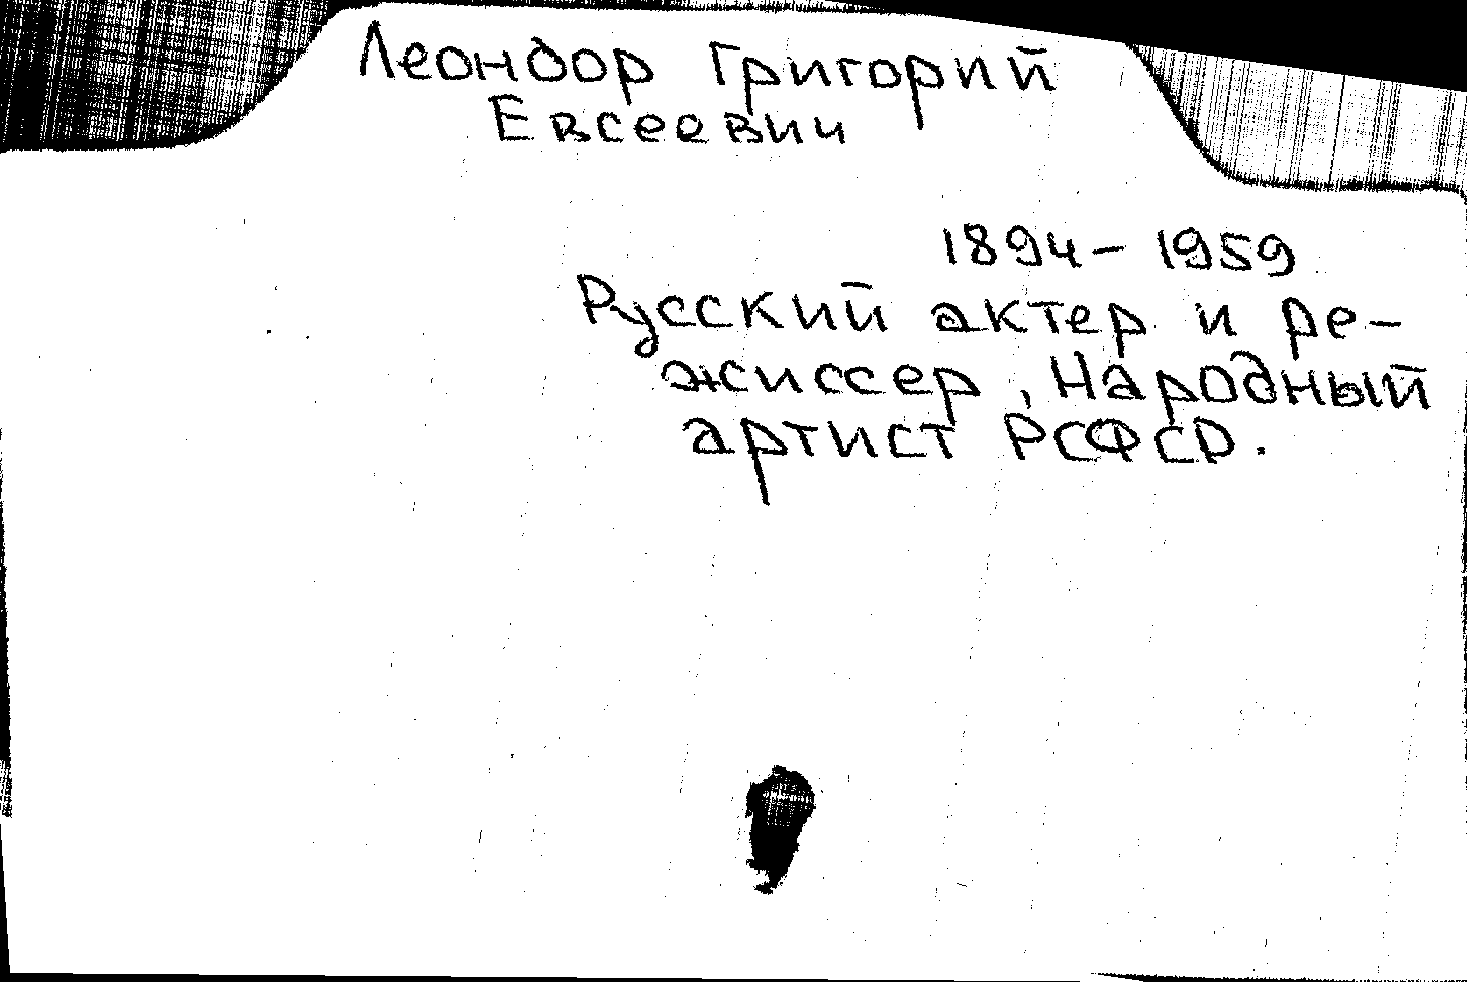 Леондор Григорий
Евсеевич
1894 – 1959
Русский актер и ре-
жиссер, Народный
артист РСФСР.